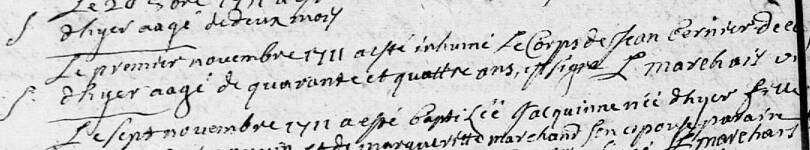 S dhyer aagé de deux mois
Le premier novembre 1711 a esté inhumé Le Corps de Jean bernier decedé
S dhyer aagé de quarante et quattre ans, et signé L marehais
Le sept novembre 1711 a esté baptisée Jacquinne née dhyer fille
et de margueritte marchand son epouse parain
L marehais